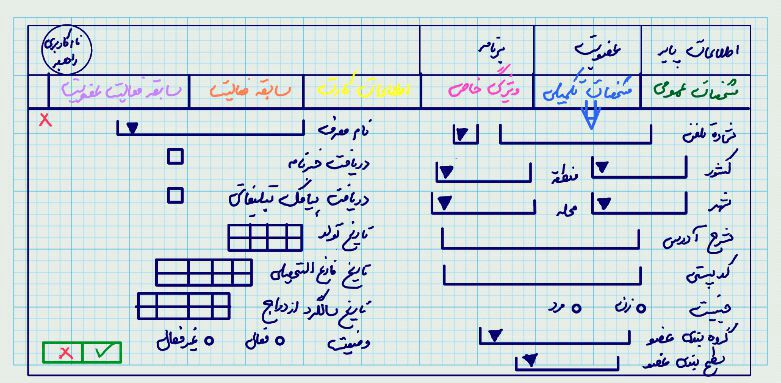 اطلاعات پایه عضویت برنامه
نام کاربری راهبر
مشخصات عمومی مشخصات تکمیلی ویژگی خاص اطلاعات کارت سابقه فعالیت سابقه فعالیت عضویت
شماره تلفن
کشور منطقه
شهر محله
شرح آدرس
کد پستی
جنسیت زن مرد
گروه بندی عضو
سطح بندی عضو
نام معرف
دریافت خبرنامه
دریافت پیامک تبلیغاتی
تاریخ تولد
تاریخ فارغ التحصیلی
تاریخ سالگرد ازدواج
وضعیت فعال غیرفعال